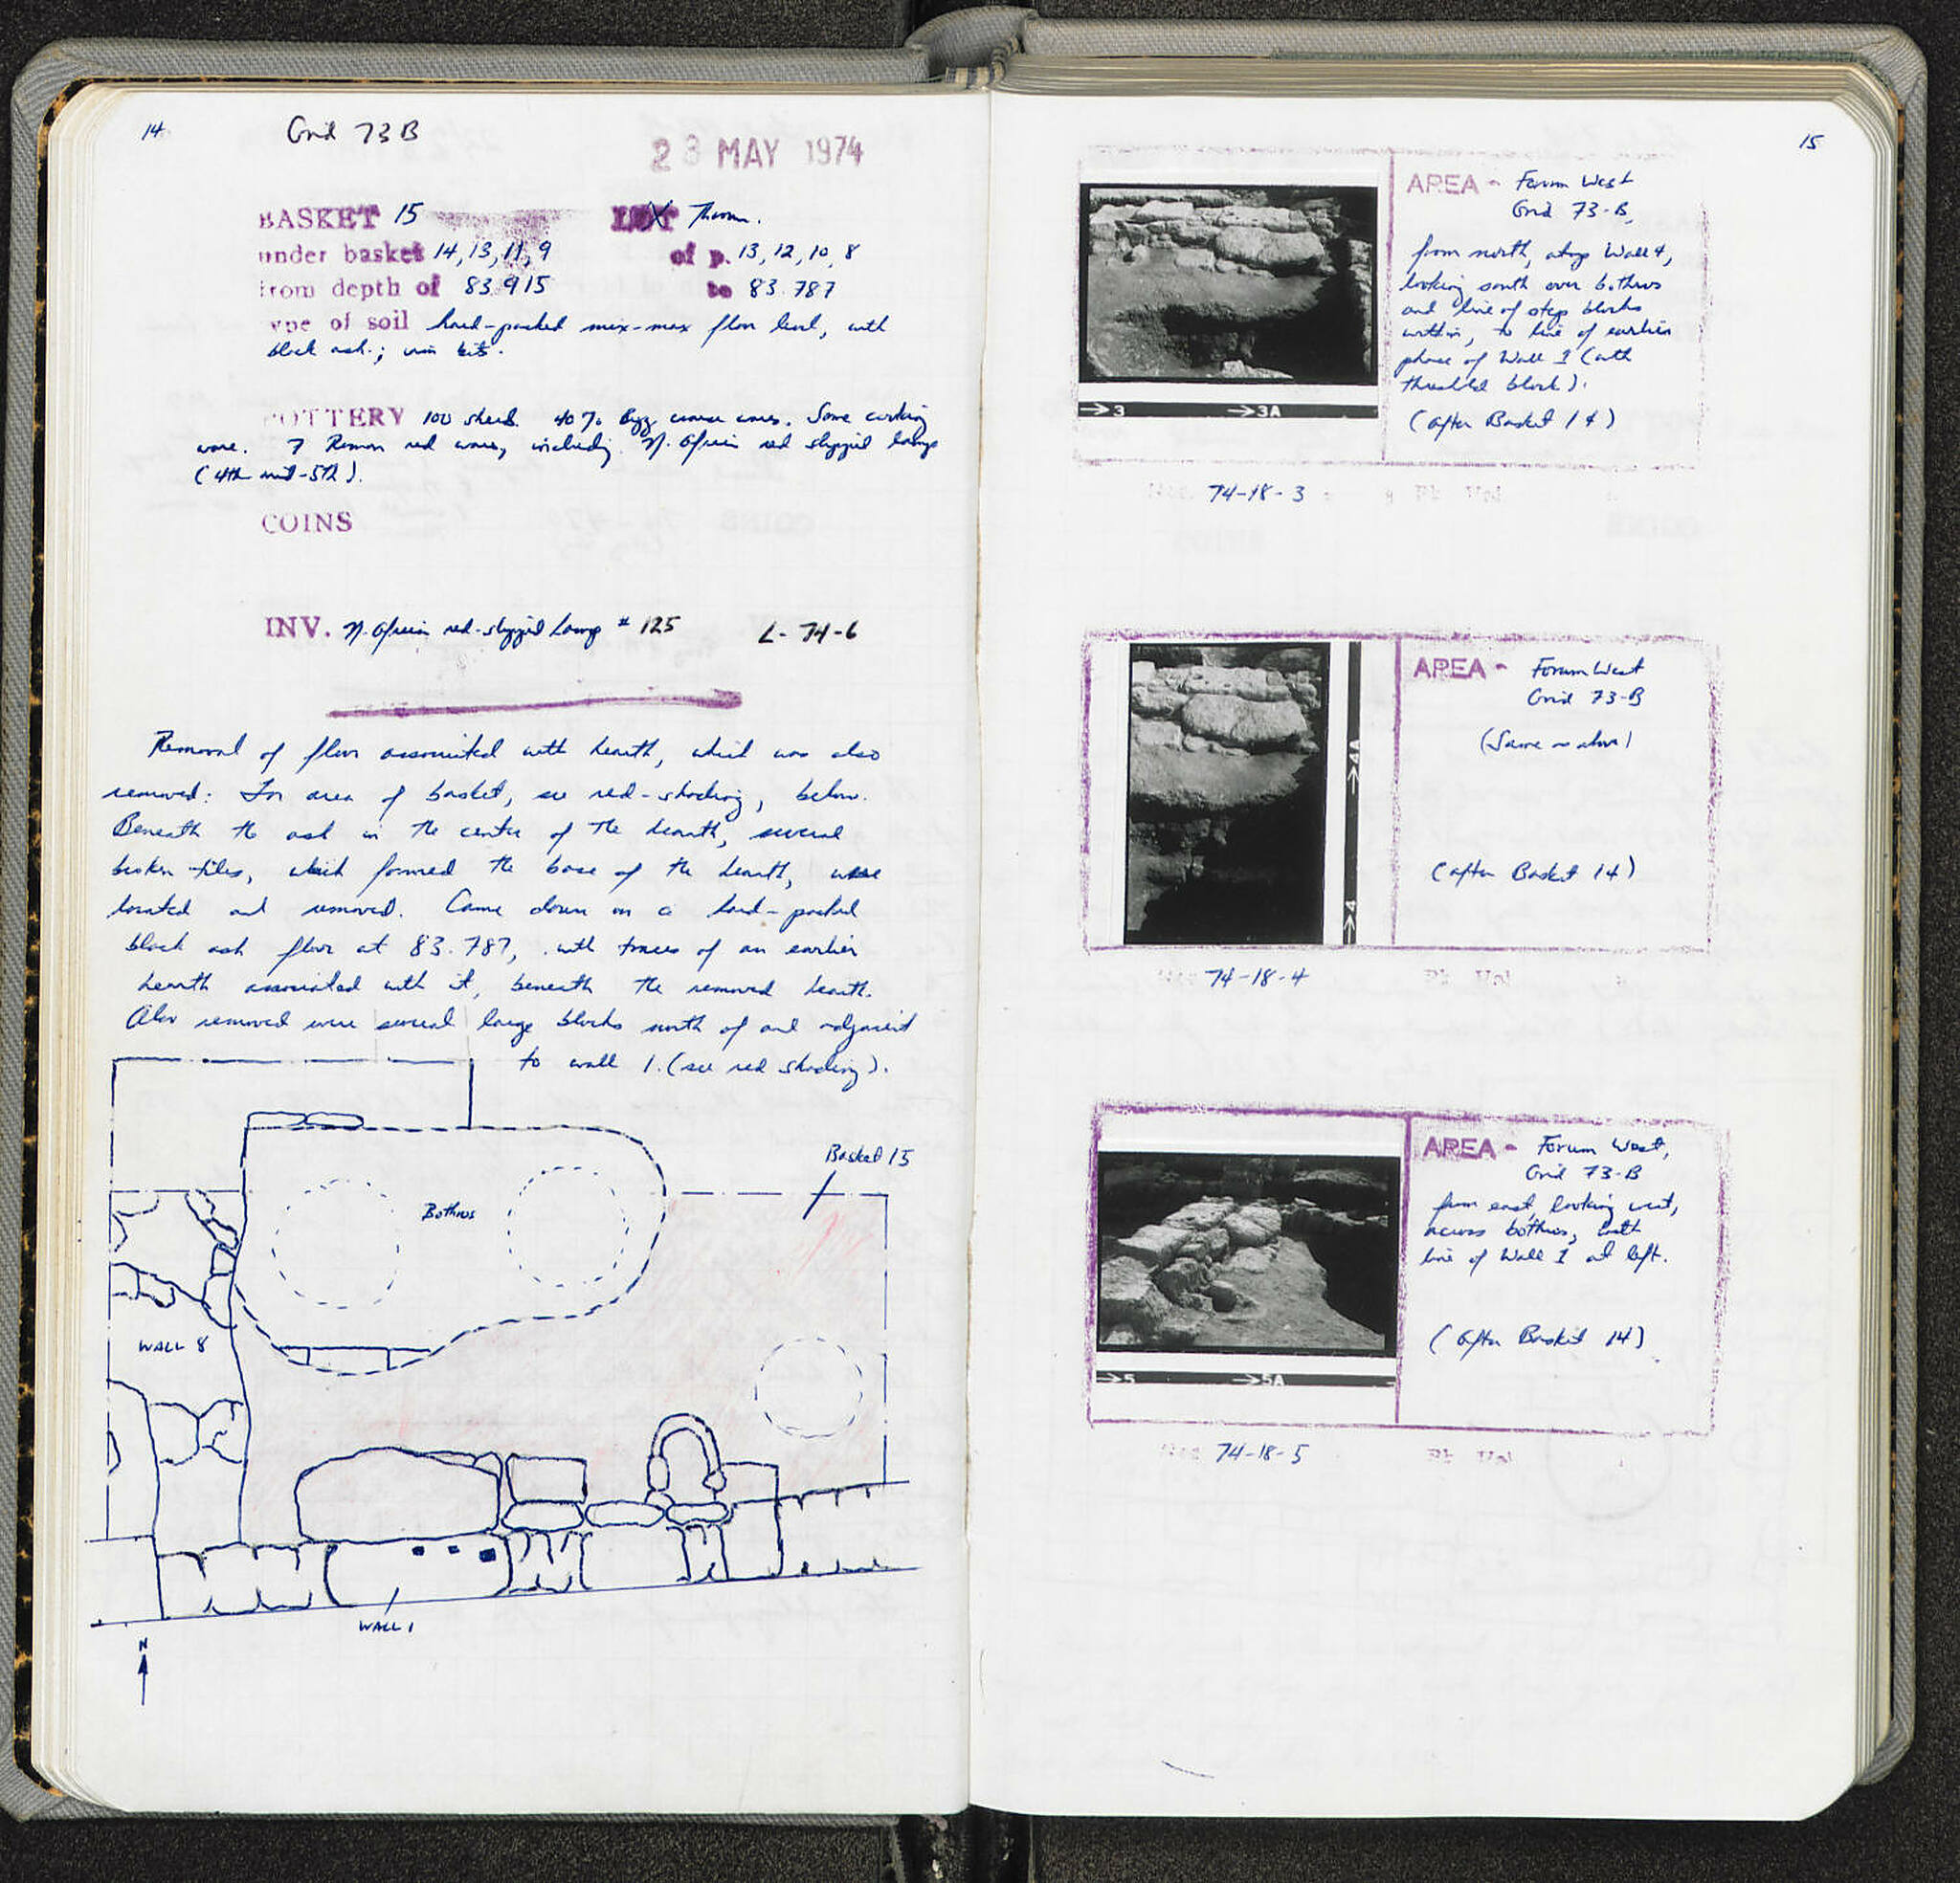 14
Grid 73 B
23 MAY 1974
BASKET 15 LOT Throw.
under basket 14, 13, 11, 9 of p. 13, 12, 10, 8
from depth of 83.915 to 83.787
ype of soil hard-packed mix-max floor level, with
black ash; iron bits.
POTTERY 100 sherds. 40% Byz coarse wares. Some cooking
ware. 7 Roman red wares, including N. African red slipped lamp
(4th mid-5th).
COINS
INV. N. African red-slipped Lamp # 125 L-74-6
Removal of floor associated with hearth, which was also
removed. For area of basket, see red-shading, below.
Beneath the ash in the centre of the hearth, several
broken tiles, which formed the base of the hearth, were
located and removed. Came down on a hard-packed
black ash floor at 83.787, with traces of an earlier
hearth associated with it, beneath the removed hearth.
Also removed were several large blocks north of and adjacent
to wall 1. (see red shading).
Basket 15
Bothros
WALL 8
WALL 1
N
15
AREA - Forum West
Grid 73-B,
from north, atop Wall 4,
looking south over bothros
and line of step blocks
within, to line of earlier
phase of Wall 1 (with
threshold block).
(after Basket 14)
→3 →3A
74-18-3
AREA - Forum West
Grid 73-B
(Same as above)
(after Basket 14)
→4A
→4
Neg. 74-18-4 Ph Vol
AREA - Forum West,
Grid 73-B
from east, looking west,
across bothros, with
line of Wall 1 at left.
(after Basket 14)
→5 →5A
Neg. 74-18-5 Ph Vol